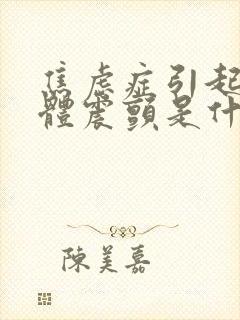 焦虑症引起
體震顫是什
陳美嘉